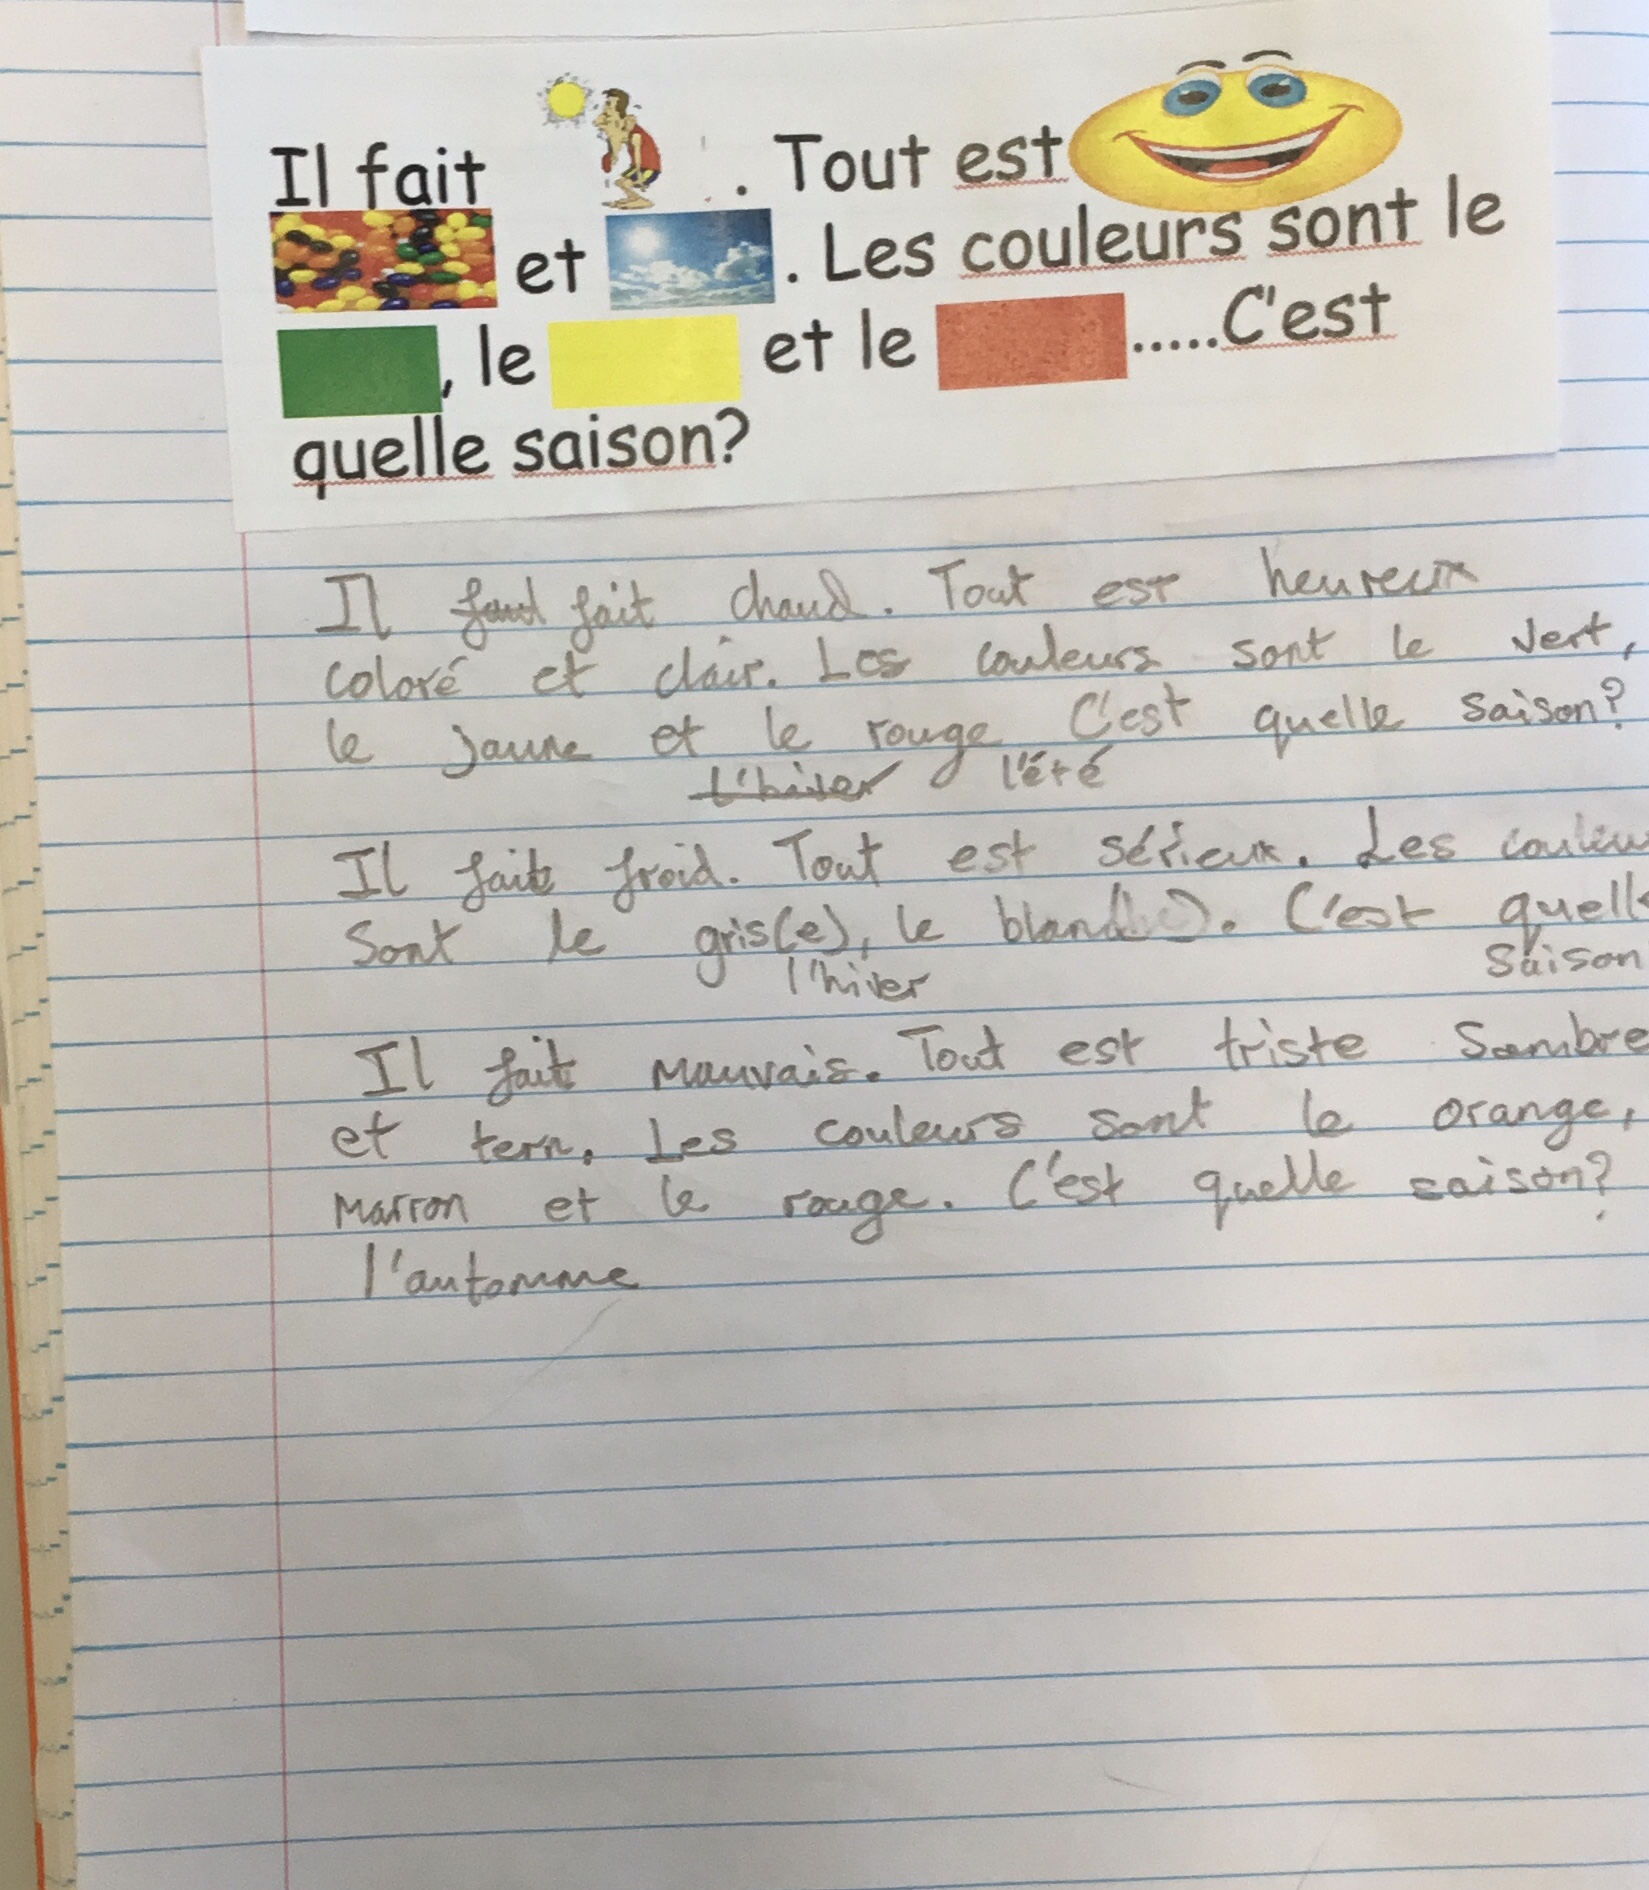 Il fait . Tout est
et . Les couleurs sont le
, le et le .....C'est
quelle saison?
Il fait chaud. Tout est heureux
coloré et clair. Les couleurs sont le vert,
le jaune et le rouge C'est quelle saison?
l'hiver l'été
Il fait froid. Tout est sérieux. Les couleu
sont le gris(e), le blanc. C'est quelle
saison
l'hiver
Il fait mauvais. Tout est triste sombre
et tern. Les couleurs sont le orange,
marron et le rouge. C'est quelle saison?
l'automne